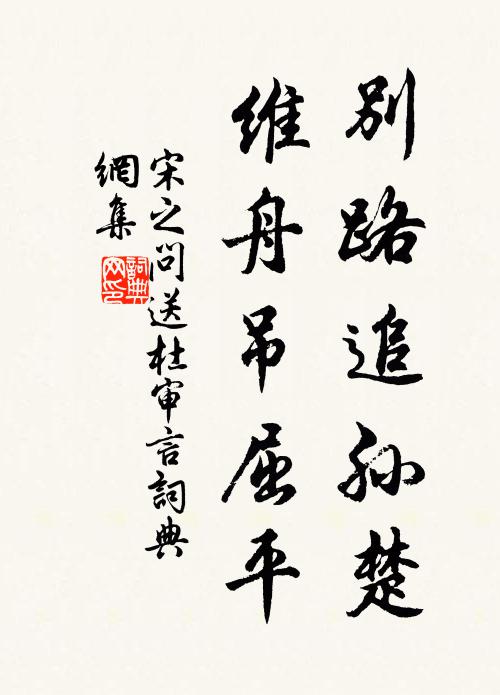 别路追孙楚
維舟吊屈平
宋之问送杜审言詞典
網集
詞典
网印